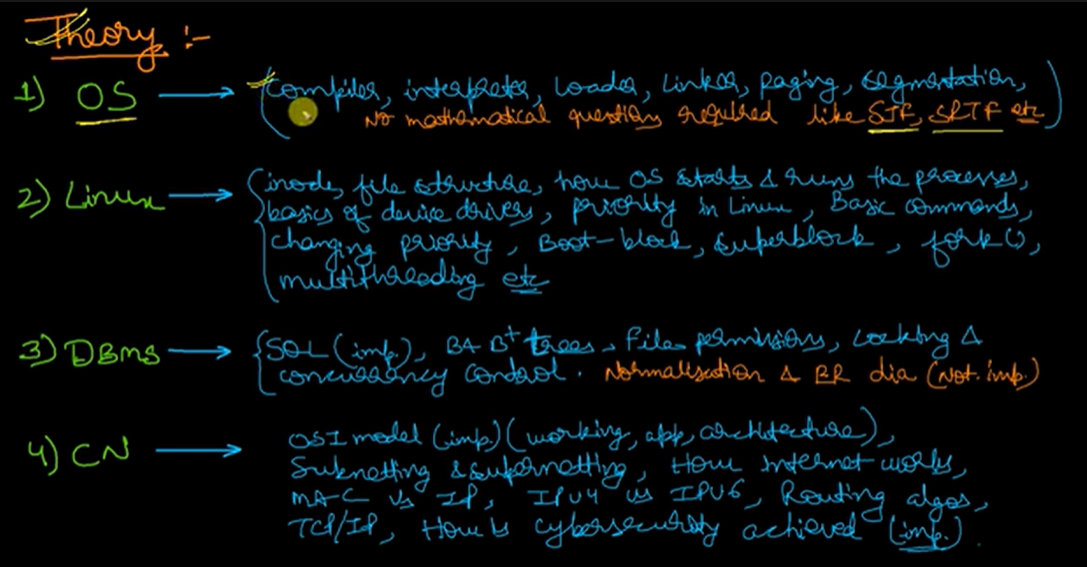 Theory :-
1) OS → (Compiler, interpreter, Loader, Linker, paging, segmentation,
No mathematical questions required like SJF, SRTF etc)
2) Linux → (inode, file structure, how OS starts & runs the processes,
basics of device drivers, priority in Linux, Basic commands,
changing priority, Boot-block, superblock, fork(),
multithreading etc
3) DBMS → {SQL (imp.), B & B+ trees, File permissions, Locking &
concurrency control. Normalisation & ER dia (Not. imp.)
4) CN → OSI model (imp.) (working, app, architecture),
Subnetting & supernetting, How internet works,
MAC vs IP, IPv4 vs IPv6, Routing algos,
TCP/IP, How is cybersecurity achieved (imp.).